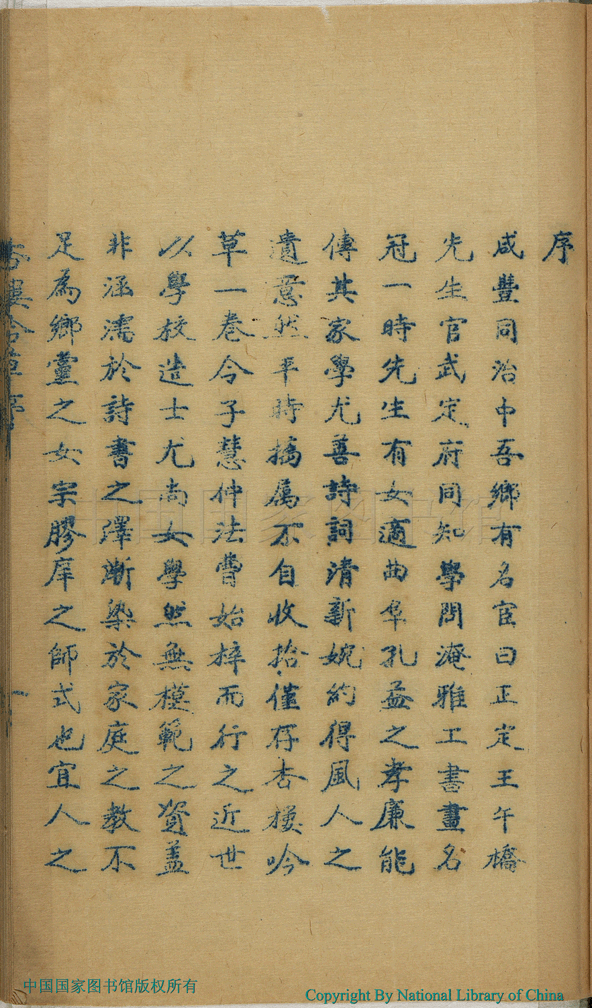 序
咸豐同治中吾鄉有名宦曰正定王午橋
先生官武定府同知學問淹雅工書畫名
冠一時先生有女適曲阜孔益之孝廉能
傳其家學尤善詩詞清新婉約得風人之
遺意然平時搞屬不自收拾僅存杏樓吟
草一卷今子慧仲法嘗始梓而行之近世
以學校造士尤尚女學然無模範之資蓋
非涵濡於詩書之澤漸染於家庭之教不
足為鄉黨之女宗膠庠之師式也宜人之
杏樓吟草 序
一
中国国家图书馆版权所有
Copyright By National Library of China